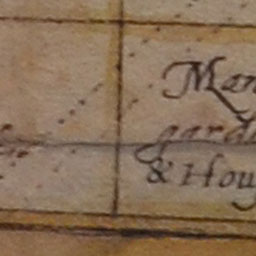 Man
gard
& Houg